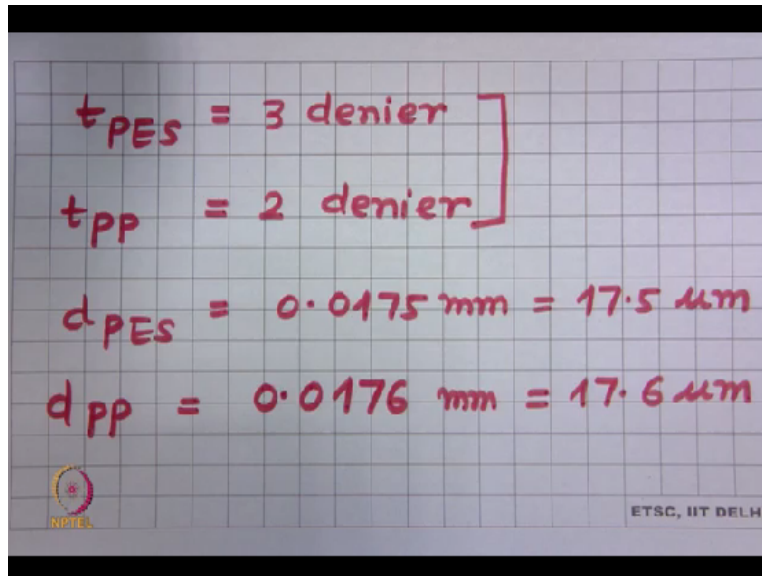 t PES = 3 denier
t PP = 2 denier
d PES = 0.0175 mm = 17.5 μm
d PP = 0.0176 mm = 17.6 μm
NPTEL
ETSC, IIT DELH